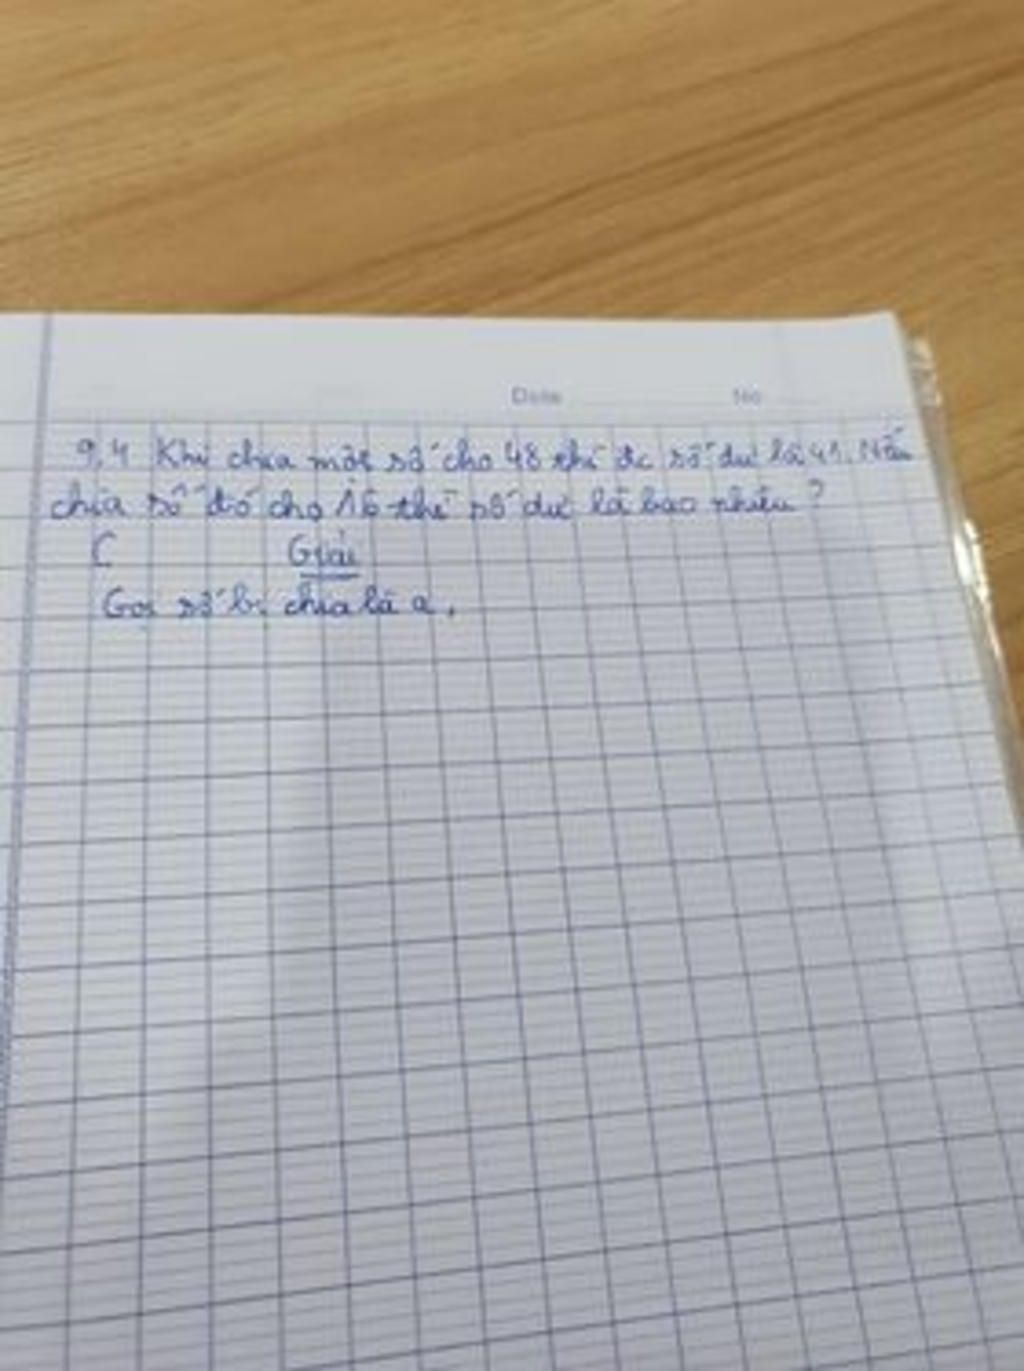 Date No
9.4 Khi chia một số cho 48 thì đc số dư là 41. Nếu
chia số đó cho 16 thì số dư là bao nhiêu?
Giải
Gọi số bị chia là a,